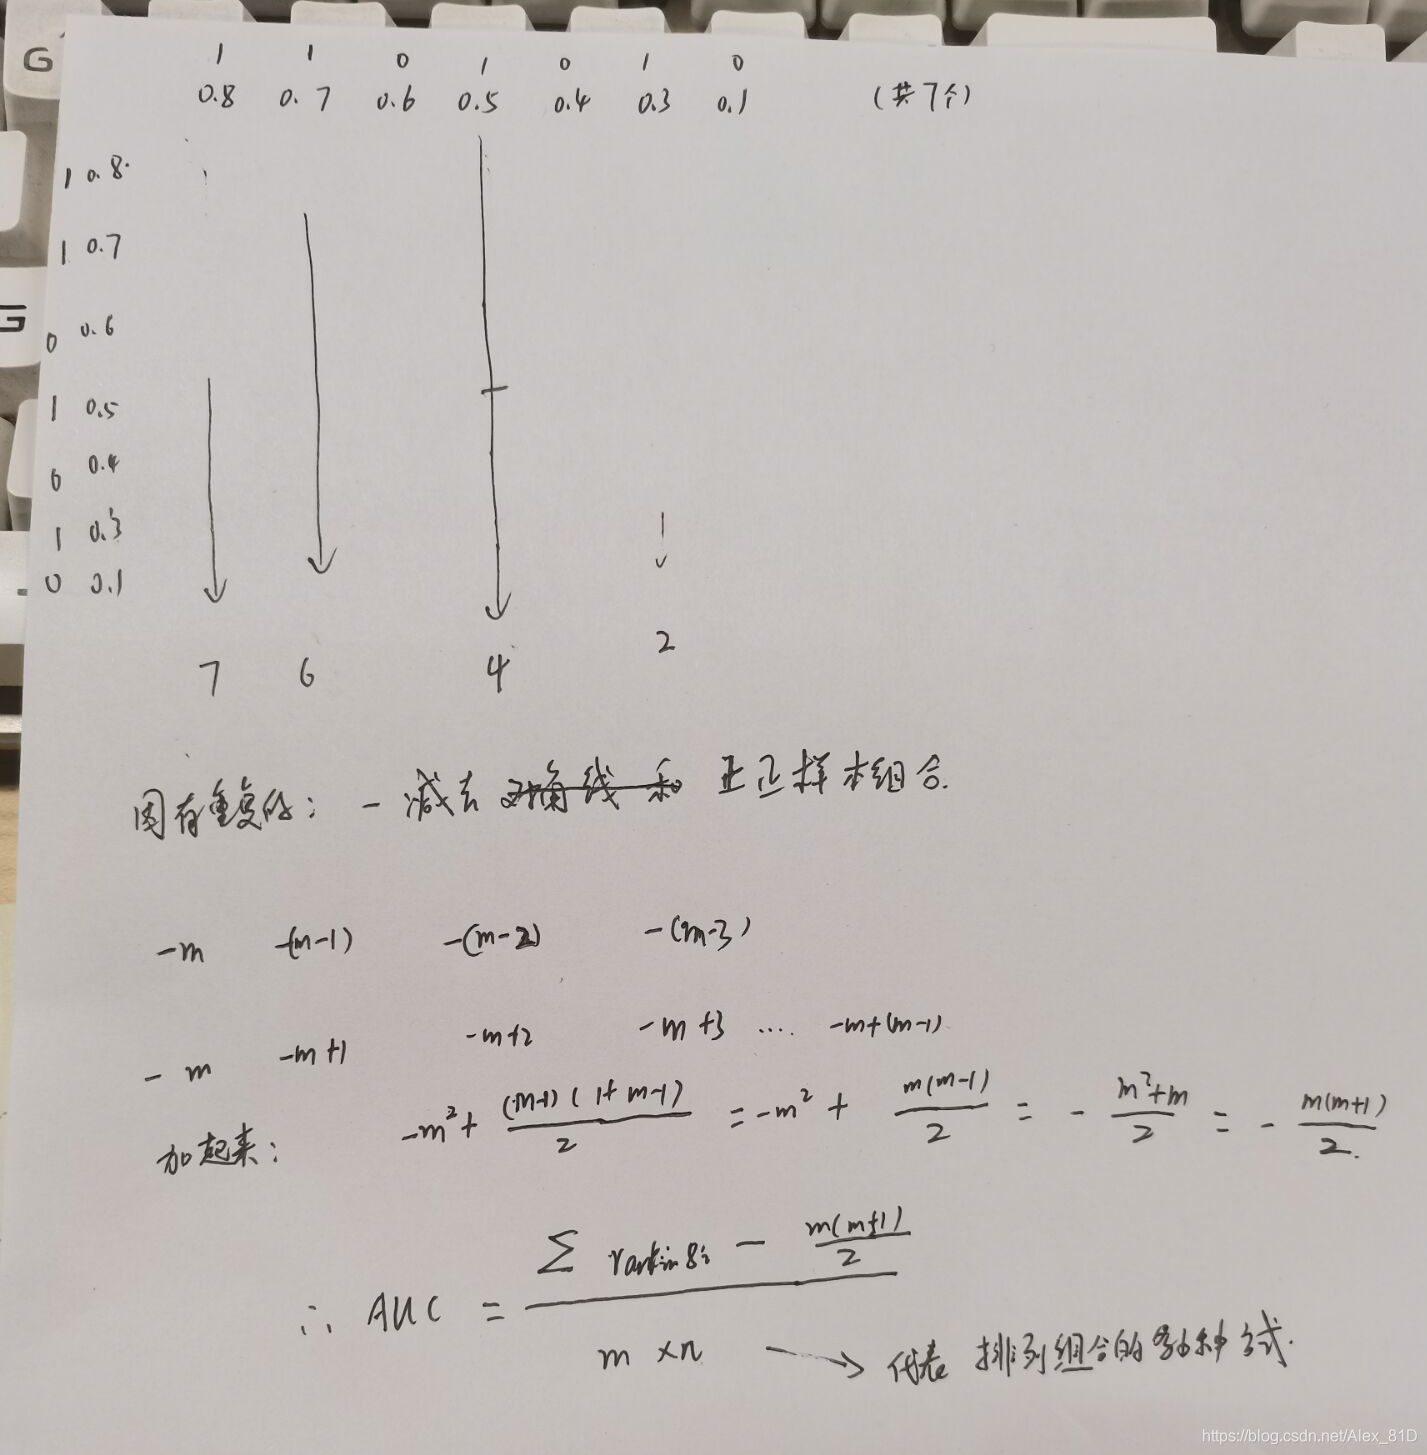 G
1 1 0 1 0 1 0
0.8 0.7 0.6 0.5 0.4 0.3 0.1 (共7个)
1 0.8
1 0.7
G
0 0.6
1 0.5
0 0.4
1 0.3
0 0.1
7 6 4 2
因有重复的: - 减去 对角线和 正正样本组合.
-m -(m-1) -(m-2) -(m-3)
-m -m+1 -m+2 -m+3 .... -m+(m-1)
加起来: -m²+ (m-1)(1+m-1)/2 = -m² + m(m-1)/2 = - m²+m/2 = - m(m+1)/2.
∴ AUC = ∑ rankinsi - m(m+1)/2 / m×n → 代表 排列组合的多种方式.
https://blog.csdn.net/Alex_81D